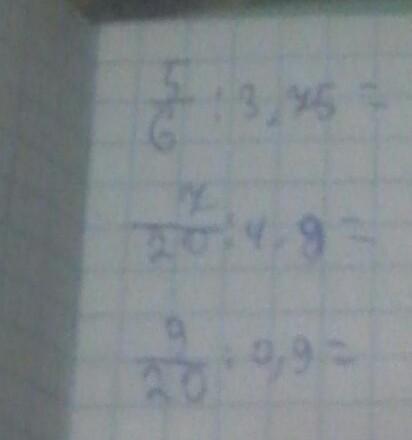 5/6 : 3,75 =
7/20 : 4,9 =
9/20 : 0,9 =